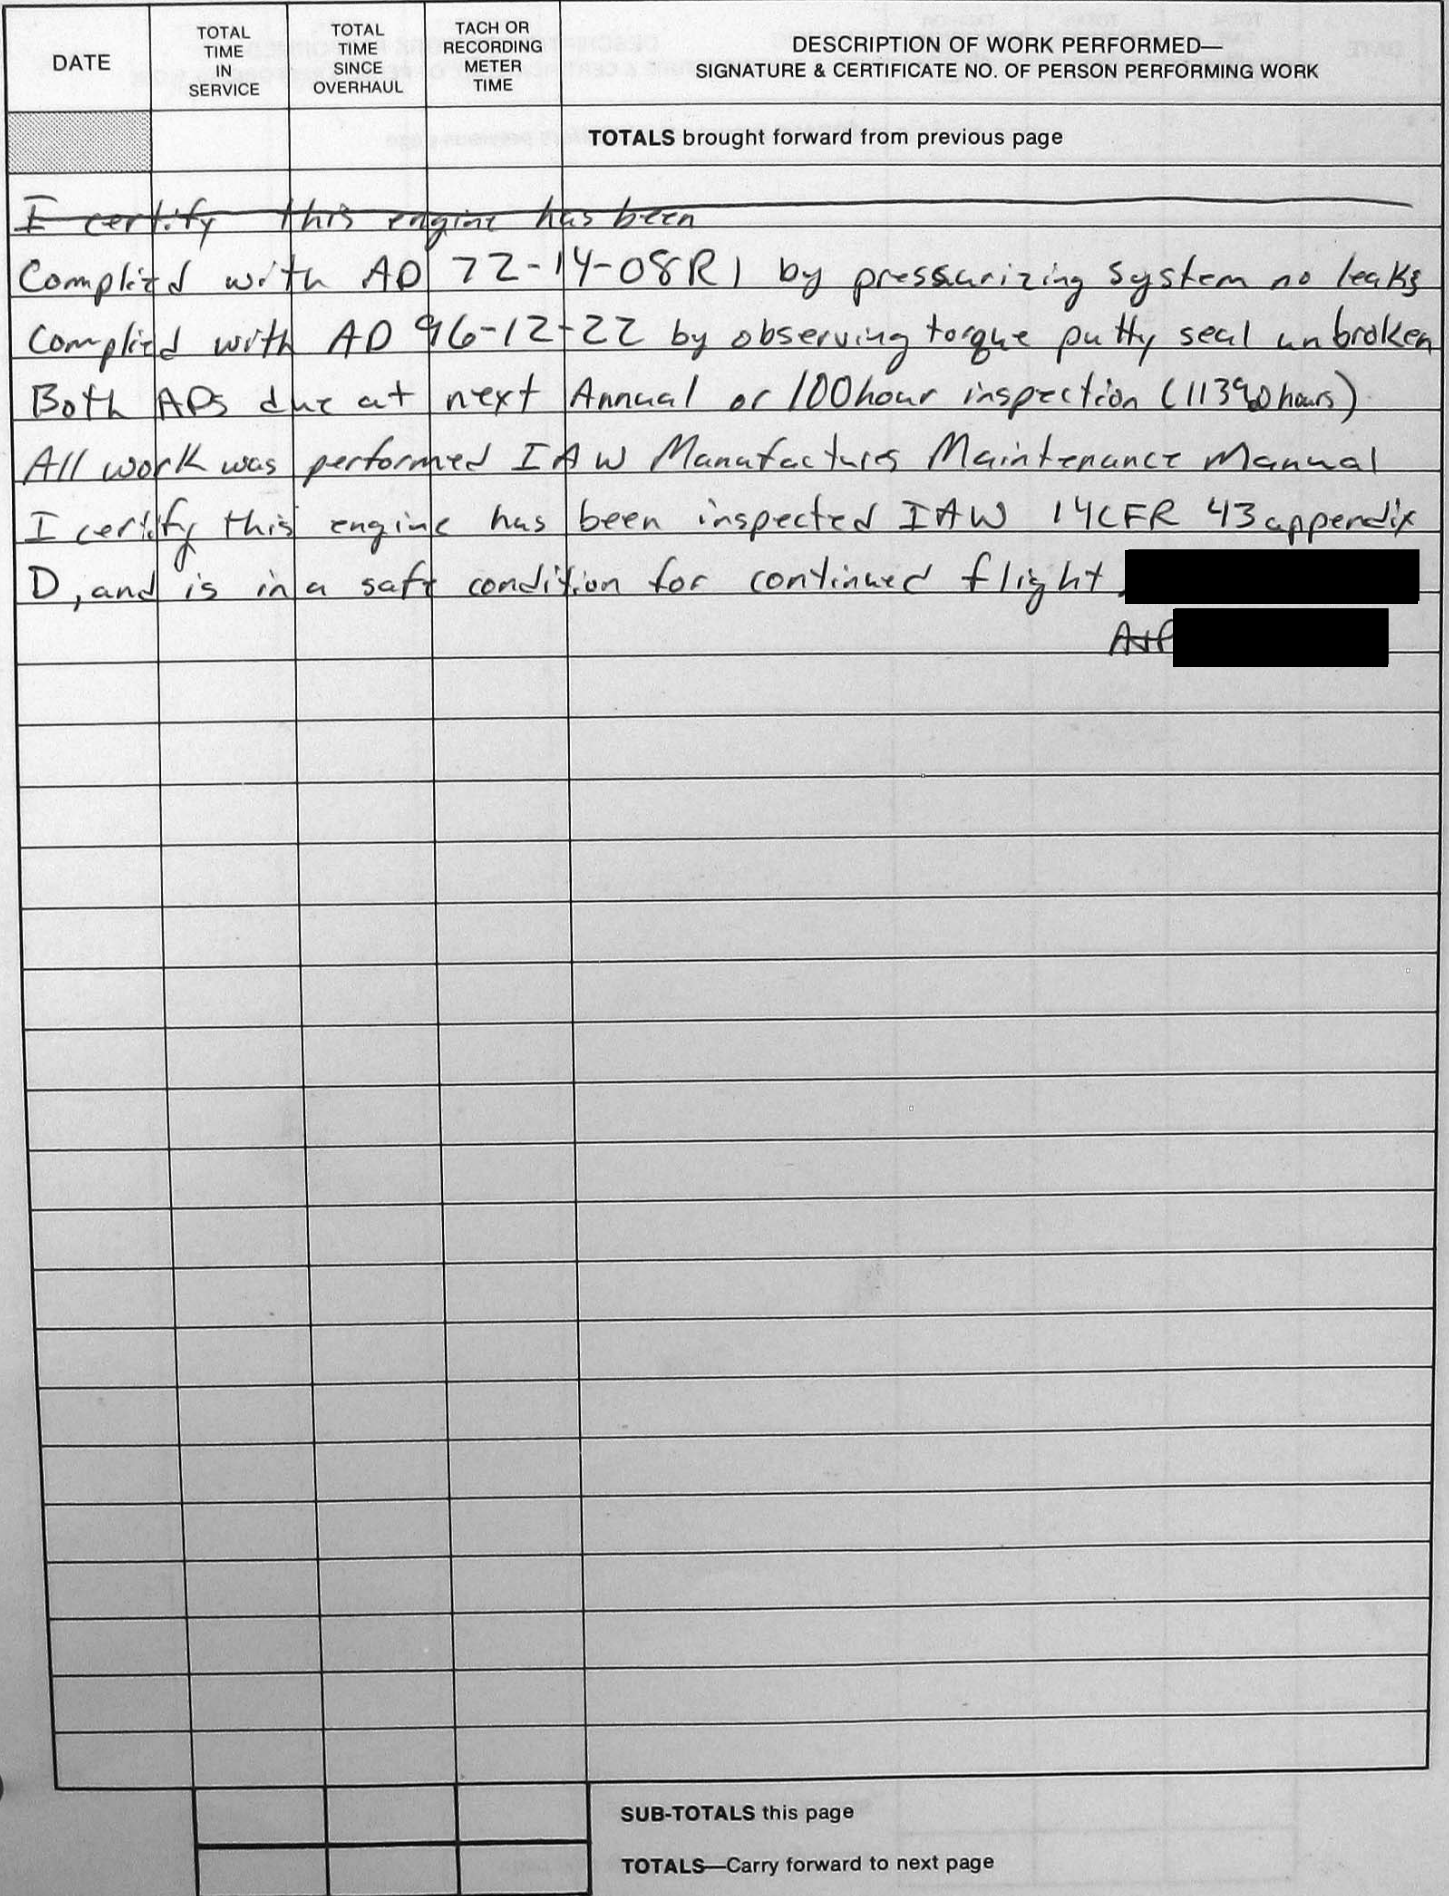 DATE
TOTAL
TIME
IN
SERVICE
TOTAL
TIME
SINCE
OVERHAUL
TACH OR
RECORDING
METER
TIME
DESCRIPTION OF WORK PERFORMED—
SIGNATURE & CERTIFICATE NO. OF PERSON PERFORMING WORK
TOTALS brought forward from previous page
I certify this engine has been
Complied with AD 72-14-08R1 by pressurizing system no leaks
Complied with AD 96-12-22 by observing torque putty seal unbroken
Both ADs due at next Annual or 100hour inspection ( hours)
All work was performed IAW Manufactures Maintenance Manual
I certify this engine has been inspected IAW 14CFR 43 appendix
D, and is in a safe condition for continued flight
A&P
SUB-TOTALS this page
TOTALS—Carry forward to next page